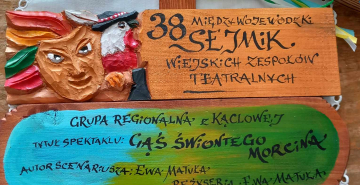 38 MIĘDZYWOJEWÓDZKI
SEJMIK
WIEJSKICH ZESPOŁÓW
TEATRALNYCH
GRUPA REGIONALNA z KĄCLOWEJ
TYTUŁ SPEKTAKLU: GĄŚ ŚWIONTEGO
MORCINA
AUTOR SCENARIUSZA: EWA MATUŁA
REŻYSERIA: EWA MATUŁA